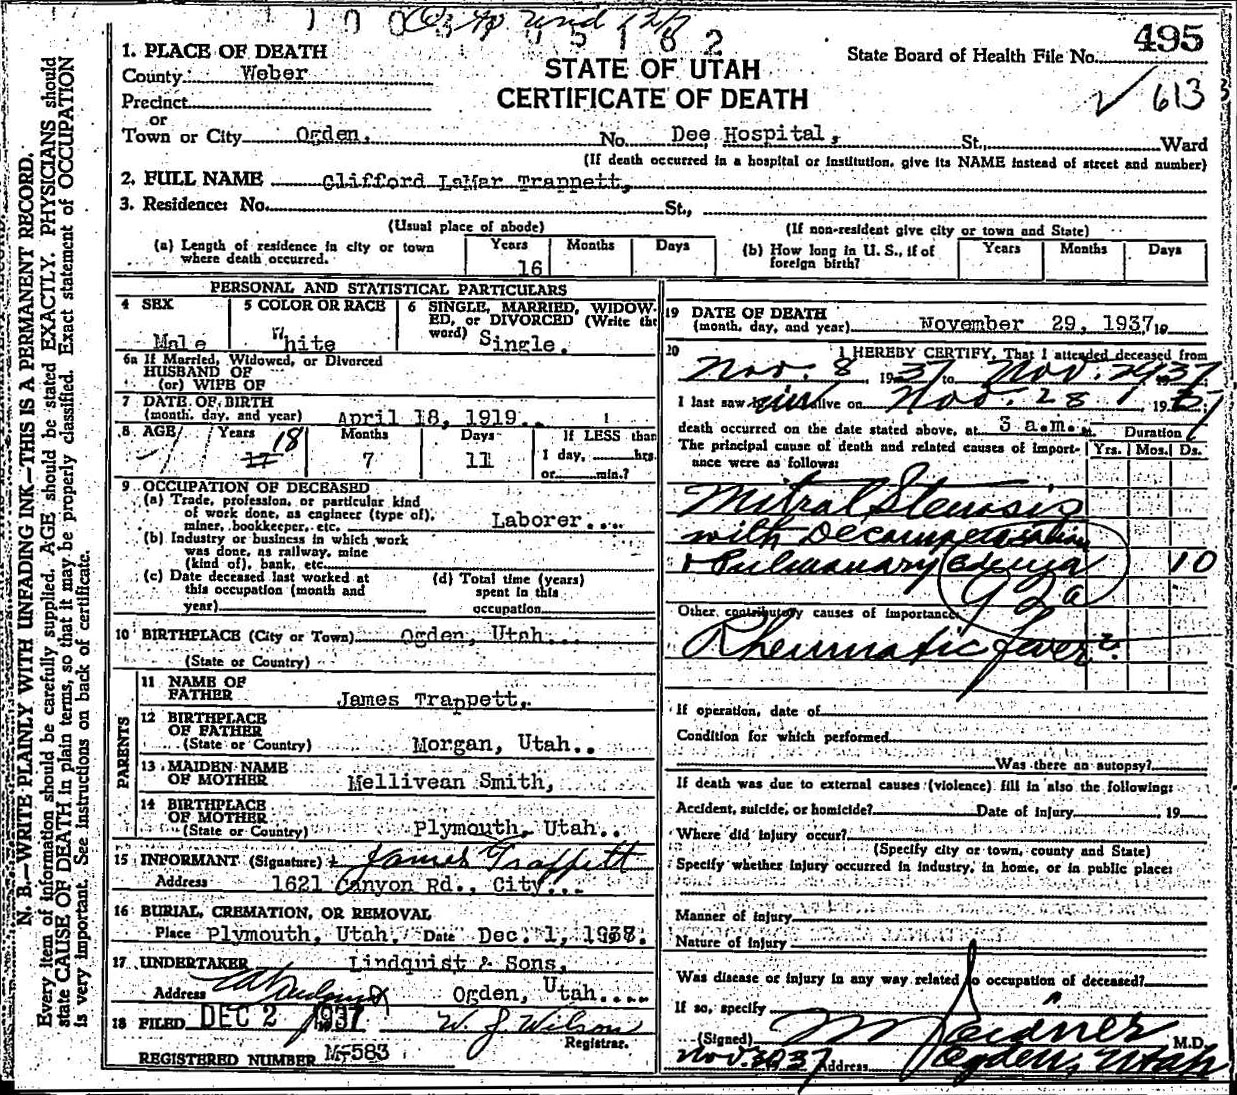 495
1. PLACE OF DEATH
STATE OF UTAH
CERTIFICATE OF DEATH
State Board of Health File No.
613
County Weber
Precinct
or
Town or City Ogden, No. Dee Hospital, St., Ward
(If death occurred in a hospital or institution, give its NAME instead of street and number)
2. FULL NAME Clifford LaMar Trappett,
3. Residence: No. St.,
(Usual place of abode) (If non-resident give city or town and State)
(a) Length of residence in city or town where death occurred. Years 16 Months Days
(b) How long in U. S., if of foreign birth? Years Months Days
PERSONAL AND STATISTICAL PARTICULARS
4 SEX Male
5 COLOR OR RACE White
6 SINGLE, MARRIED, WIDOWED, or DIVORCED (Write the word) Single.
6a If Married, Widowed, or Divorced
HUSBAND OF
(or) WIFE OF
7 DATE OF BIRTH
(month, day, and year) April 18, 1919.
8 AGE Years 17 18 Months 7 Days 11 If LESS than 1 day, hrs. or min.?
9 OCCUPATION OF DECEASED
(a) Trade, profession, or particular kind
of work done, as engineer (type of),
miner, bookkeeper, etc. Laborer...
(b) Industry or business in which work
was done, as railway, mine
(kind of), bank, etc.
(c) Date deceased last worked at
this occupation (month and
year)
(d) Total time (years)
spent in this
occupation
10 BIRTHPLACE (City or Town) Ogden, Utah...
(State or Country)
PARENTS
11 NAME OF
FATHER James Trappett,
12 BIRTHPLACE
OF FATHER
(State or Country) Morgan, Utah..
13 MAIDEN NAME
OF MOTHER Mellivean Smith,
14 BIRTHPLACE
OF MOTHER
(State or Country) Plymouth, Utah..
15 INFORMANT (Signature) James Trappett
Address 1621 Canyon Rd., City...
16 BURIAL, CREMATION, OR REMOVAL
Place Plymouth, Utah. Date Dec. 1, 1937.
17 UNDERTAKER Lindquist & Sons,
Address Ogden, Utah....
18 FILED DEC 2 1937 W. J. Wilson
Registrar.
REGISTERED NUMBER M-583
19 DATE OF DEATH
(month, day, and year) November 29, 1937 19
20 I HEREBY CERTIFY, That I attended deceased from
Nov. 8 1937 to Nov. 29 1937
I last saw him alive on Nov. 28, 1937
death occurred on the date stated above, at 3 a.m.
Duration
The principal cause of death and related causes of importance were as follows: Yrs. Mos. Ds.
Mitral Stenosis
with Decompensation
+ Pulmonary edema 10
92a
Other contributory causes of importance:
Rheumatic fever ?
If operation, date of
Condition for which performed
Was there an autopsy?
If death was due to external causes (violence) fill in also the following:
Accident, suicide, or homicide? Date of injury 19
Where did injury occur?
(Specify city or town, county and State)
Specify whether injury occurred in industry, in home, or in public place:
Manner of injury
Nature of injury
Was disease or injury in any way related to occupation of deceased?
If so, specify
(Signed) M.D.
Nov. 30 37 Address Ogden, Utah
N. B.—WRITE PLAINLY WITH UNFADING INK—THIS IS A PERMANENT RECORD.
Every item of information should be carefully supplied. AGE should be stated EXACTLY. PHYSICIANS should
state CAUSE OF DEATH in plain terms, so that it may be properly classified. Exact statement of OCCUPATION
is very important. See instructions on back of certificate.